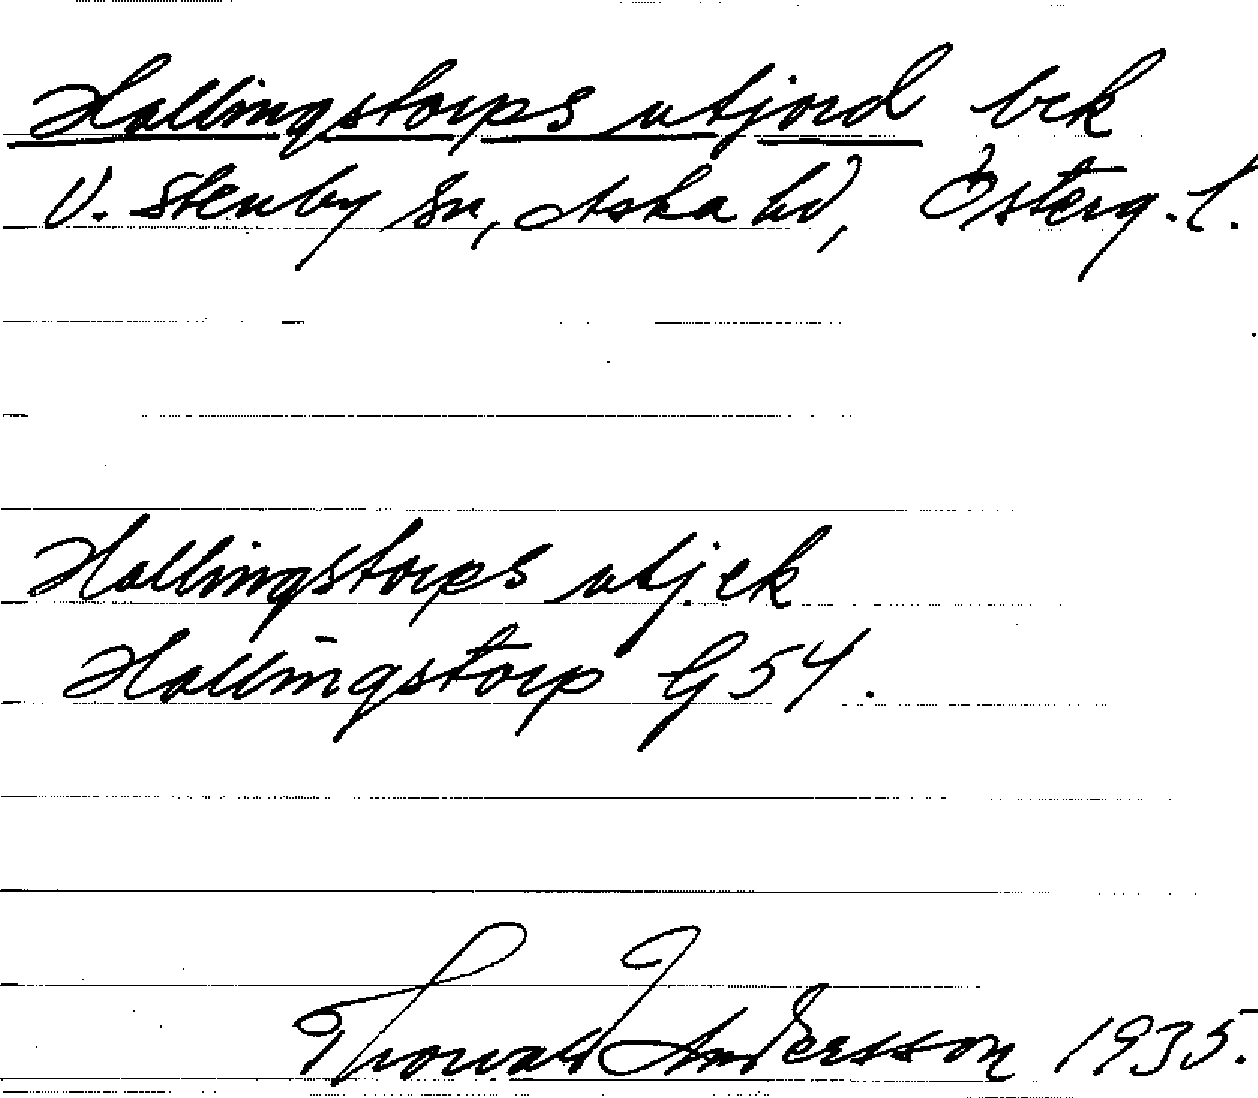 Hallingstorps utjord bek
V. Stenby sn, Aska hd, Österg. l.
Hallingstorps utj. ek
Hallingstorp G 54.
Thorvald Andersson 1935.